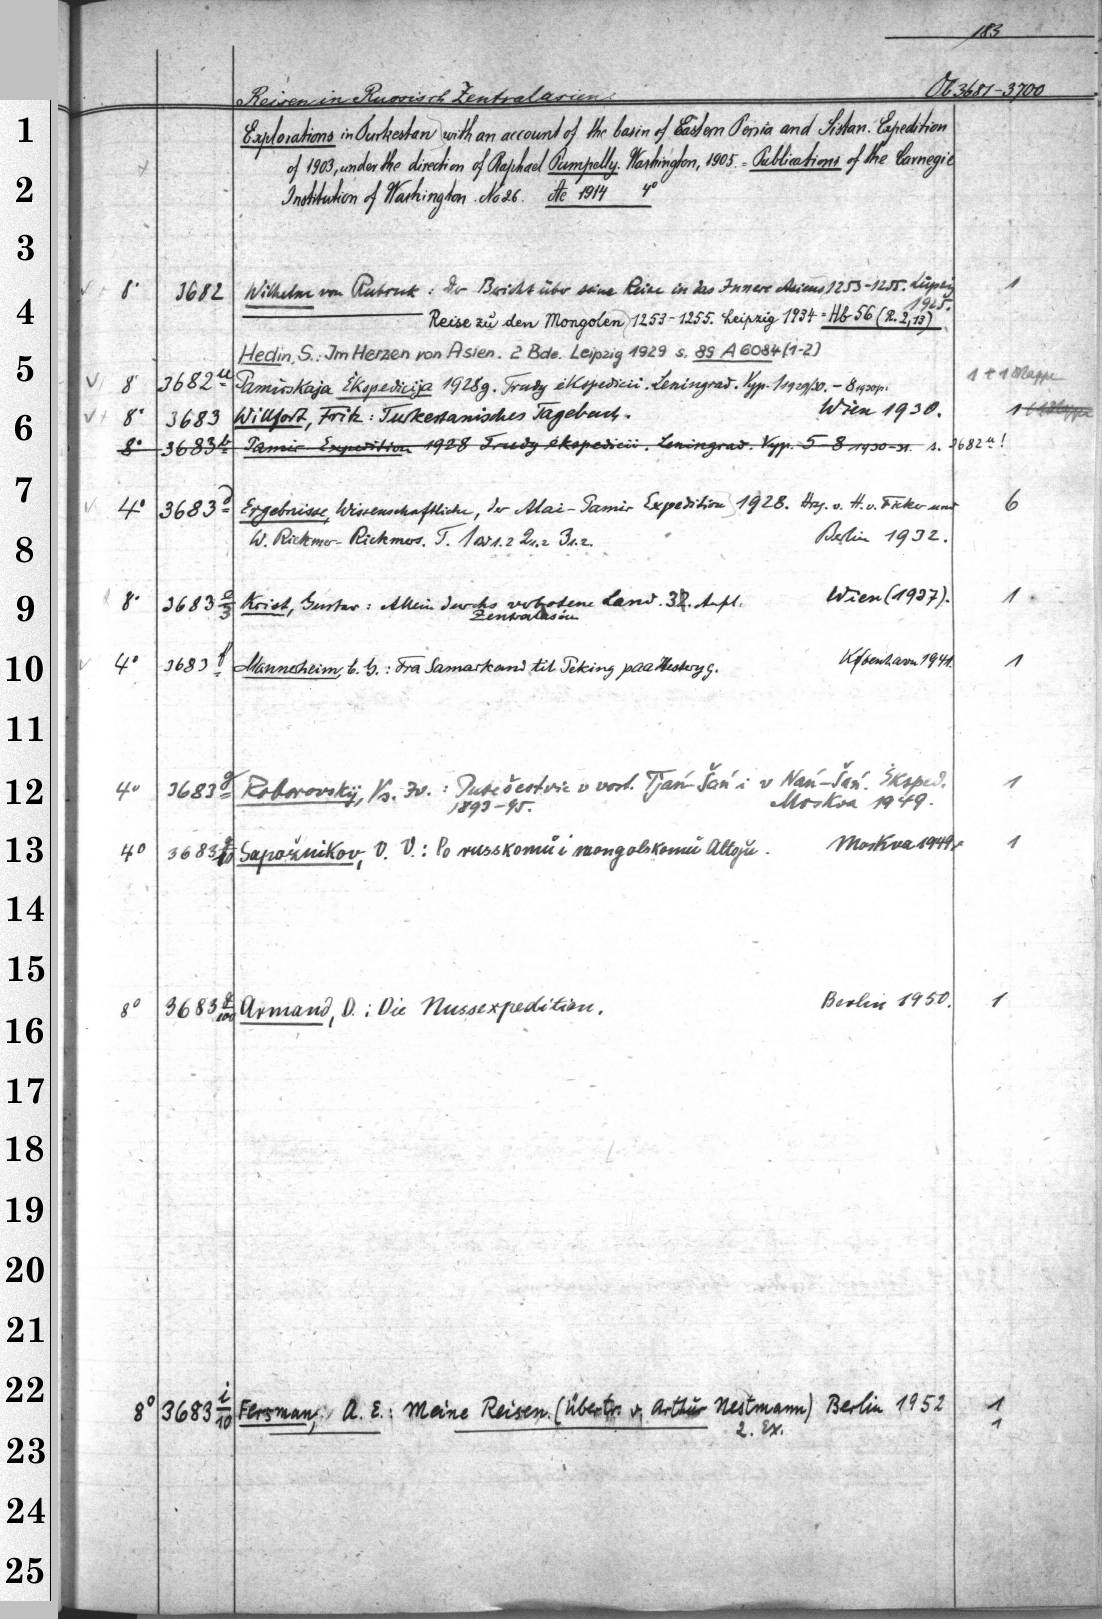 183
Reisen in Russisch Zentralasien. Ob 3681-3700
1 Explorations in Turkestan with an account of the basin of Eastern Persia and Sistan. Expedition
2 of 1903, under the direction of Raphael Pumpelly. Washington, 1905. = Publications of the Carnegie
Institution of Washington. No 26. Ac 1914 4°
3
8° 3682 Wilhelm von Rubruk: Der Bericht über seine Reise in das Innere Asiens 1253-1255. Leipzig 1925. 1
4 Reise zu den Mongolen 1253-1255. Leipzig 1934 = Hb 56 (R. 2,13)
Hedin, S.: Im Herzen von Asien. 2 Bde. Leipzig 1929 s. 89 A 6084 (1-2)
5 8° 3682 a Pamirskaja Ėkspedicija 1928 g. Trudy ėkspedicii. Leningrad. Vyp. 1 1929/30. - 8 1930. 1 + 1 Mappe
6 8° 3683 Willfort, Fritz: Turkestanisches Tagebuch. Wien 1930. 1
8° 3683 b Pamir Expedition 1928 Trudy ėkspedicii. Leningrad. Vyp. 5-8 1930-31. s. 3682 a!
7 4° 3683 d Ergebnisse, Wissenschaftliche, der Alai-Pamir Expedition 1928. Hrsg. v. H. v. Ficker und 6
8 W. Rickmer-Rickmers. T. 1 2 3 Berlin 1932.
9 8° 3683 e/3 Krist, Gustav: Allein durchs verbotene Land. 32. Aufl. Wien (1937). 1
Zentralasien
10 4° 3683 f Mannerheim, C. G.: Fra Samarkand til Peking paa Hesteryg. København 1941. 1
11
12 4° 3683 g Roborovskij, Vs. Iv.: Putešestvie v vost. Tjań-Šań i v Nań-Šań. Ėksped. 1
1893-95. Moskva 1949.
13 4° 3683 g/10 Sapožnikov, V. V.: Po russkomu i mongolskomu Altaju. Moskva 1949. 1
14
15
8° 3683 g/100 Armand, D.: Die Nussexpedition. Berlin 1950. 1
16
17
18
19
20
21
22 8° 3683 i/10 Fersman, A. E.: Meine Reisen. (Übertr. v. Arthur Nestmann) Berlin 1952 1
2. Ex. 1
23
24
25